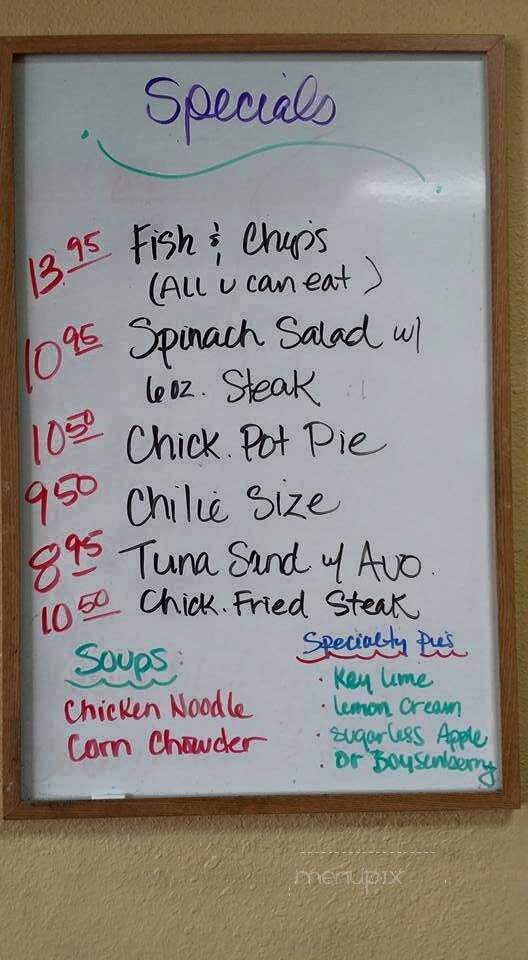 Specials
13.95 Fish & Chips
(All u can eat)
10 95 Spinach Salad w/
6 oz. Steak
10 50 Chick. Pot Pie
9 50 Chilie Size
8 95 Tuna Sand w/ Avo.
10 50 Chick. Fried Steak
Soups
Chicken Noodle
Corn Chowder
Specialty Pies
· Key Lime
· Lemon Cream
· Sugarless Apple
· Or Boysenberry
menupix